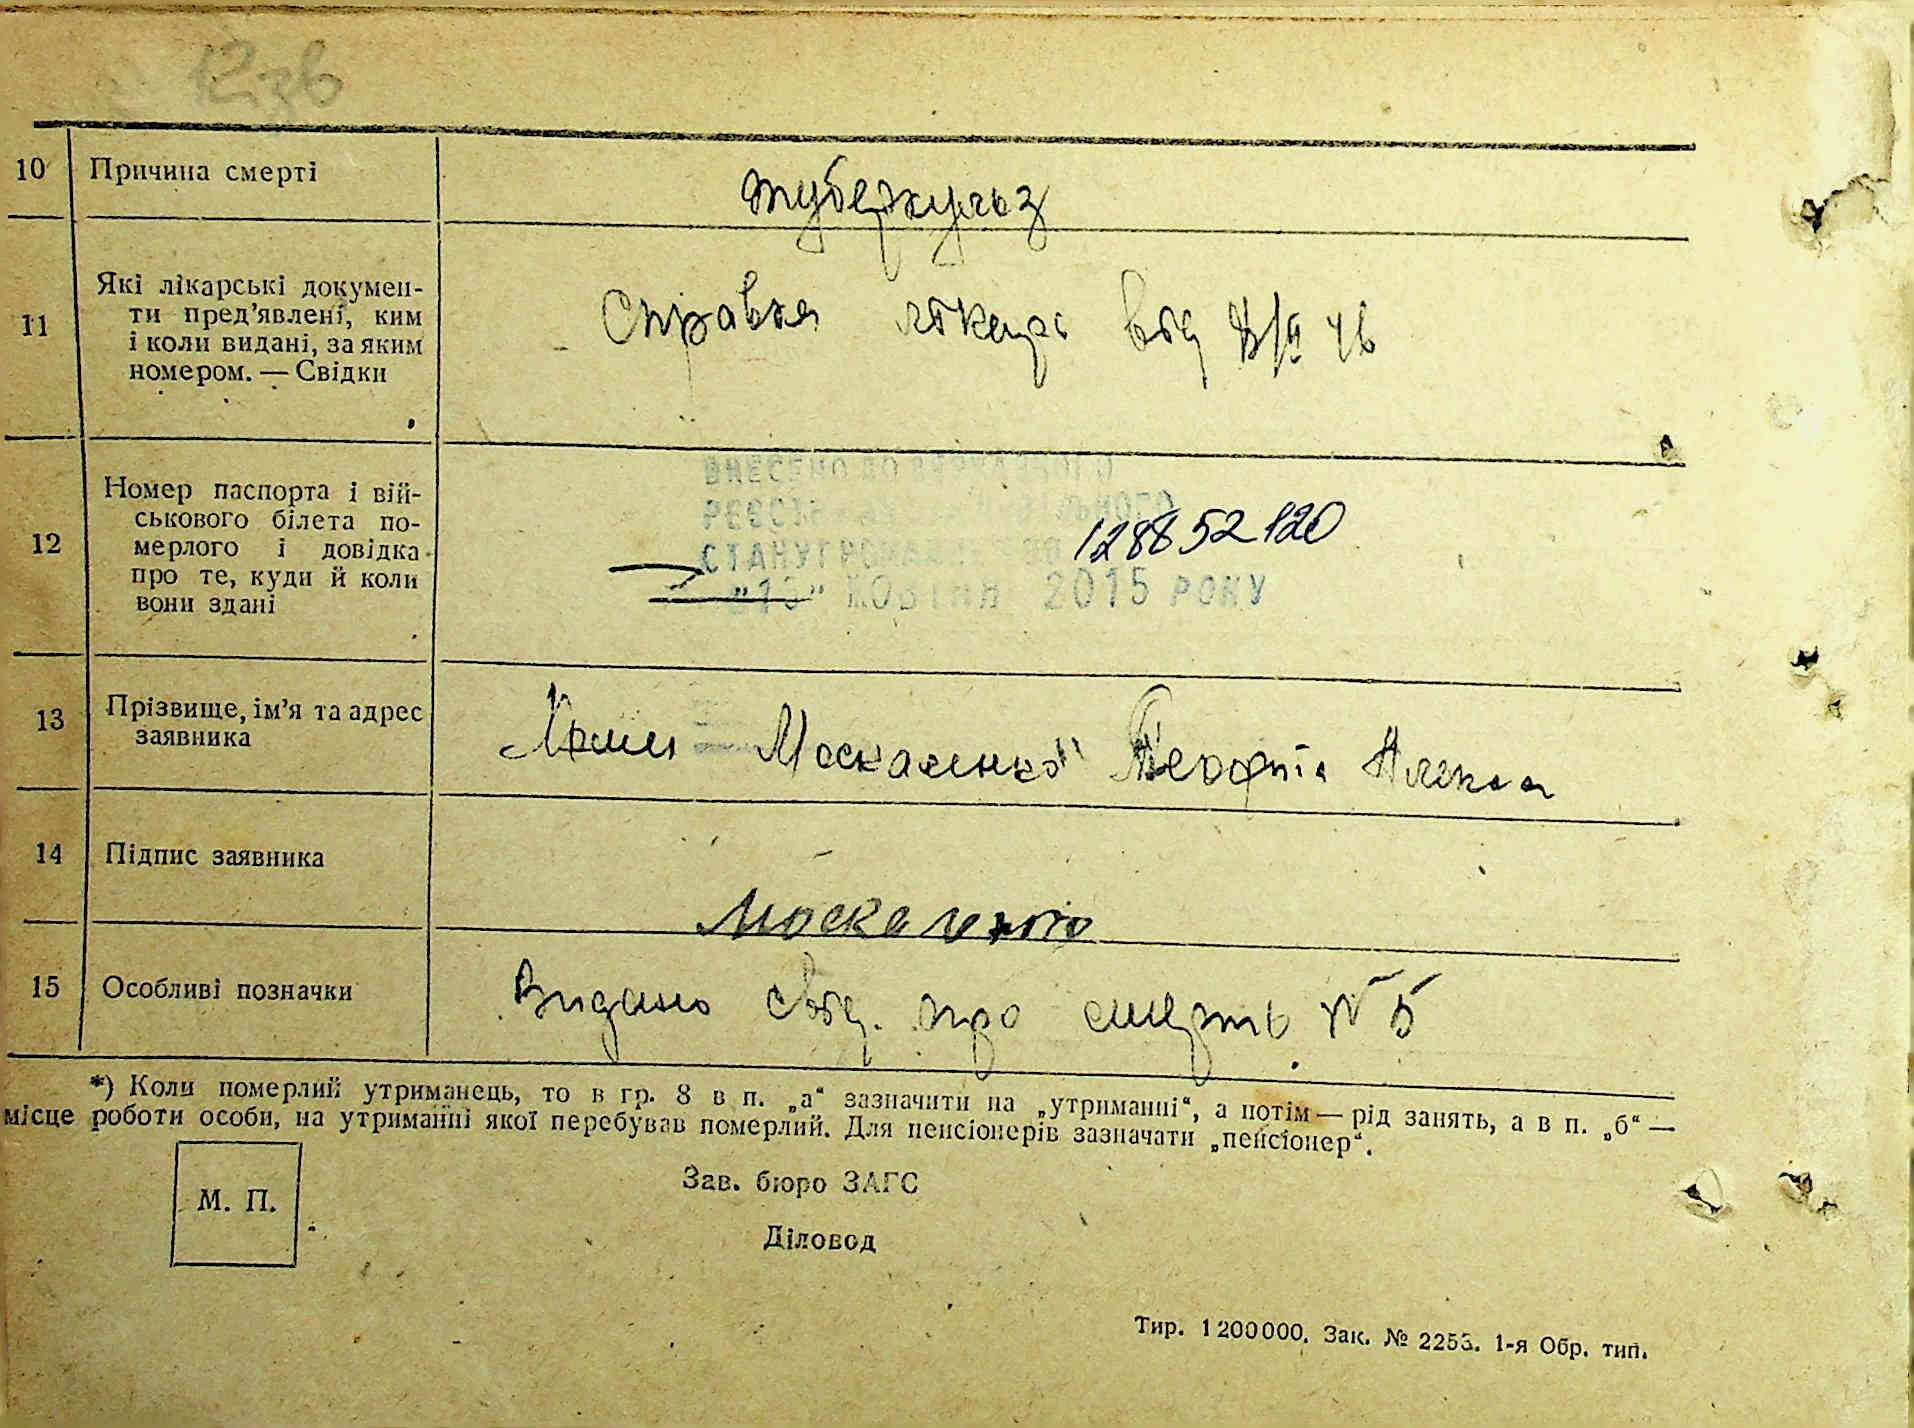 10 Причина смерті
туберкульоз
11 Які лікарські докумен-
ти пред’явлені, ким
і коли видані, за яким
номером. — Свідки
Справка лікаря від
12 Номер паспорта і вій-
ськового білета по-
мерлого і довідка
про те, куди й коли
вони здані
ВНЕСЕНО ДО ДЕРЖАВНОГО
РЕЄСТРУ
СТАНУ ГРОМАДЯН
128852120
ЖОВТНЯ 2015 РОКУ
13 Прізвище, ім’я та адрес
заявника
Москаленко
14 Підпис заявника
Москаленко
15 Особливі позначки
Видано свід. про смерть № 5
*) Коли померлий утриманець, то в гр. 8 в п. „а“ зазначити на „утриманні“, а потім — рід занять, а в п. „б“ —
місце роботи особи, на утриманні якої перебував померлий. Для пенсіонерів зазначати „пенсіонер“.
М. П.
Зав. бюро ЗАГС
Діловод
Тир. 1200000. Зак. № 2253. 1-я Обр. тип.